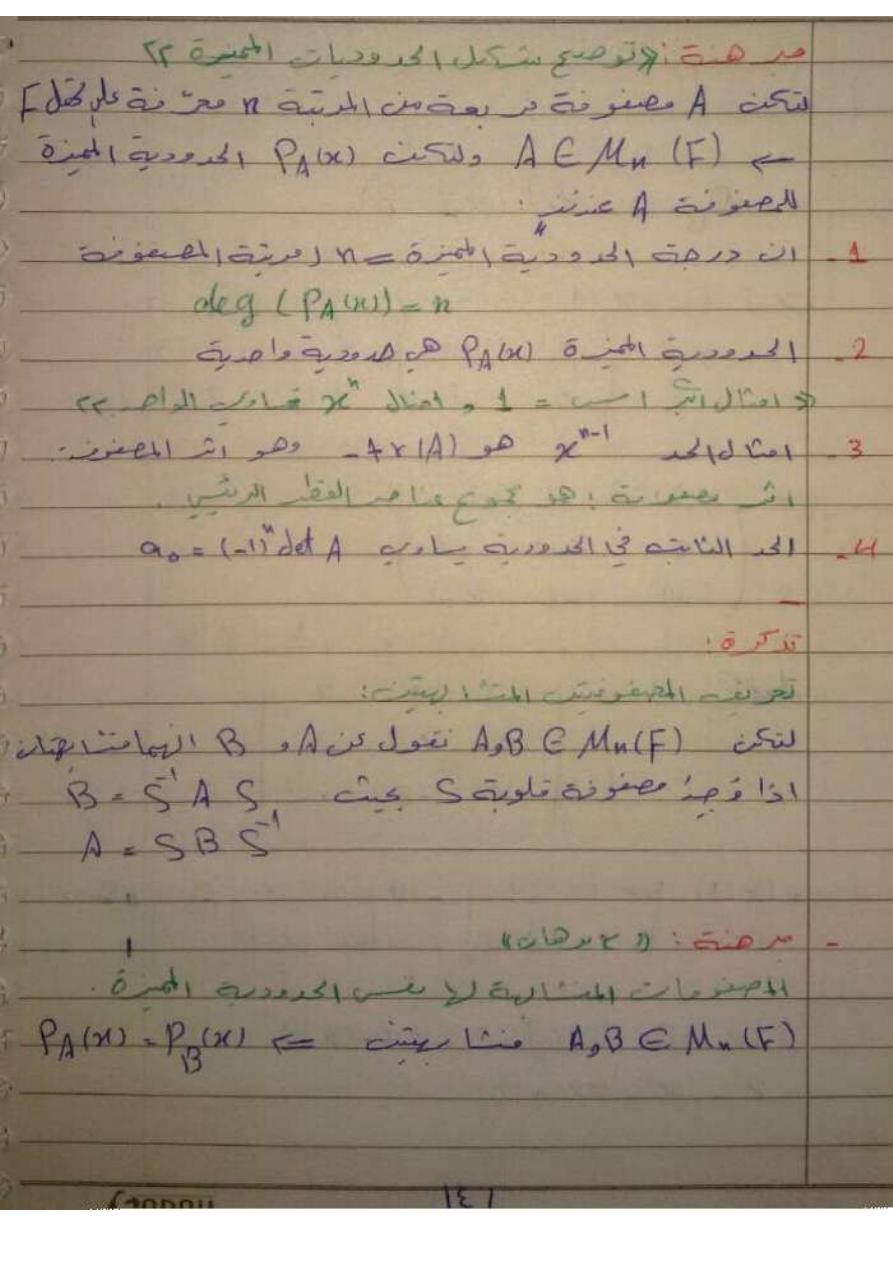 مبرهنة : « توضيح شكل الحدوديات المميزة »
لتكن A مصفوفة مربعة من المرتبة n معرّفة على حقل F
⇐ A ∈ Mn (F) ولتكن PA(x) الحدودية المميزة
للمصفوفة A عندئذٍ :
1- ان درجة الحدودية المميزة = n (مرتبة المصفوفة
deg (PA(x)) = n
2- الحدودية المميزة PA(x) هي حدودية واحدية
« امثال اكبر اس = 1 و امثال xⁿ تساوي الواحد »
3- امثال الحد xⁿ⁻¹ هو -tr(A) وهو اثر المصفوفة
اثر مصفوفة : هو مجموع عناصر القطر الرئيسي .
4- الحد الثابت في الحدودية يساوي a₀ = (-1)ⁿ det A
تذكرة :
تعريف المصفوفتين المتشابهتين :
لتكن A,B ∈ Mn(F) نقول عن A و B انهما متشابهتان
اذا وُجِدَ مصفوفة قلوبة S بحيث B = S⁻¹ A S
A = S B S⁻¹
- مبرهنة : « برهان »
المصفوفات المتشابهة لها نفس الحدودية المميزة .
A,B ∈ Mn (F) متشابهتين ⇐ PA(x) = PB(x)